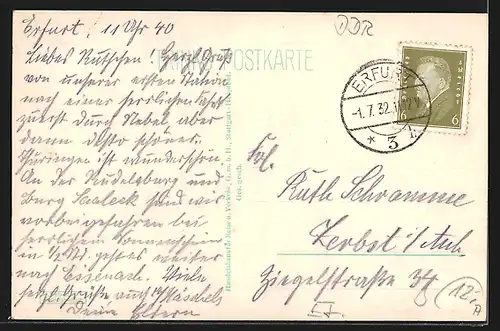 Erfurt, 11 Uhr 40
Liebes Rutschen! Herzl. Grüße
von unserer ersten Station
nach einer herrlichen Fahrt
zuerst durch Nebel aber
dann desto schöner.
Thüringen ist wunderschön.
An der Rudelsburg und
Burg Saaleck sind wir
vorbeigefahren bei
herrlichem Sonnenschein
in 1/2 Std. geht es weiter
nach Eisenach. Viele
herzl. Grüße auch
Deine Eltern
POSTKARTE
DDR
ERFURT
-1.7.32.
* 3
6 6
Frl.
Ruth Schramme
Zerbst i/Anh.
Ziegelstraße
12.-
A